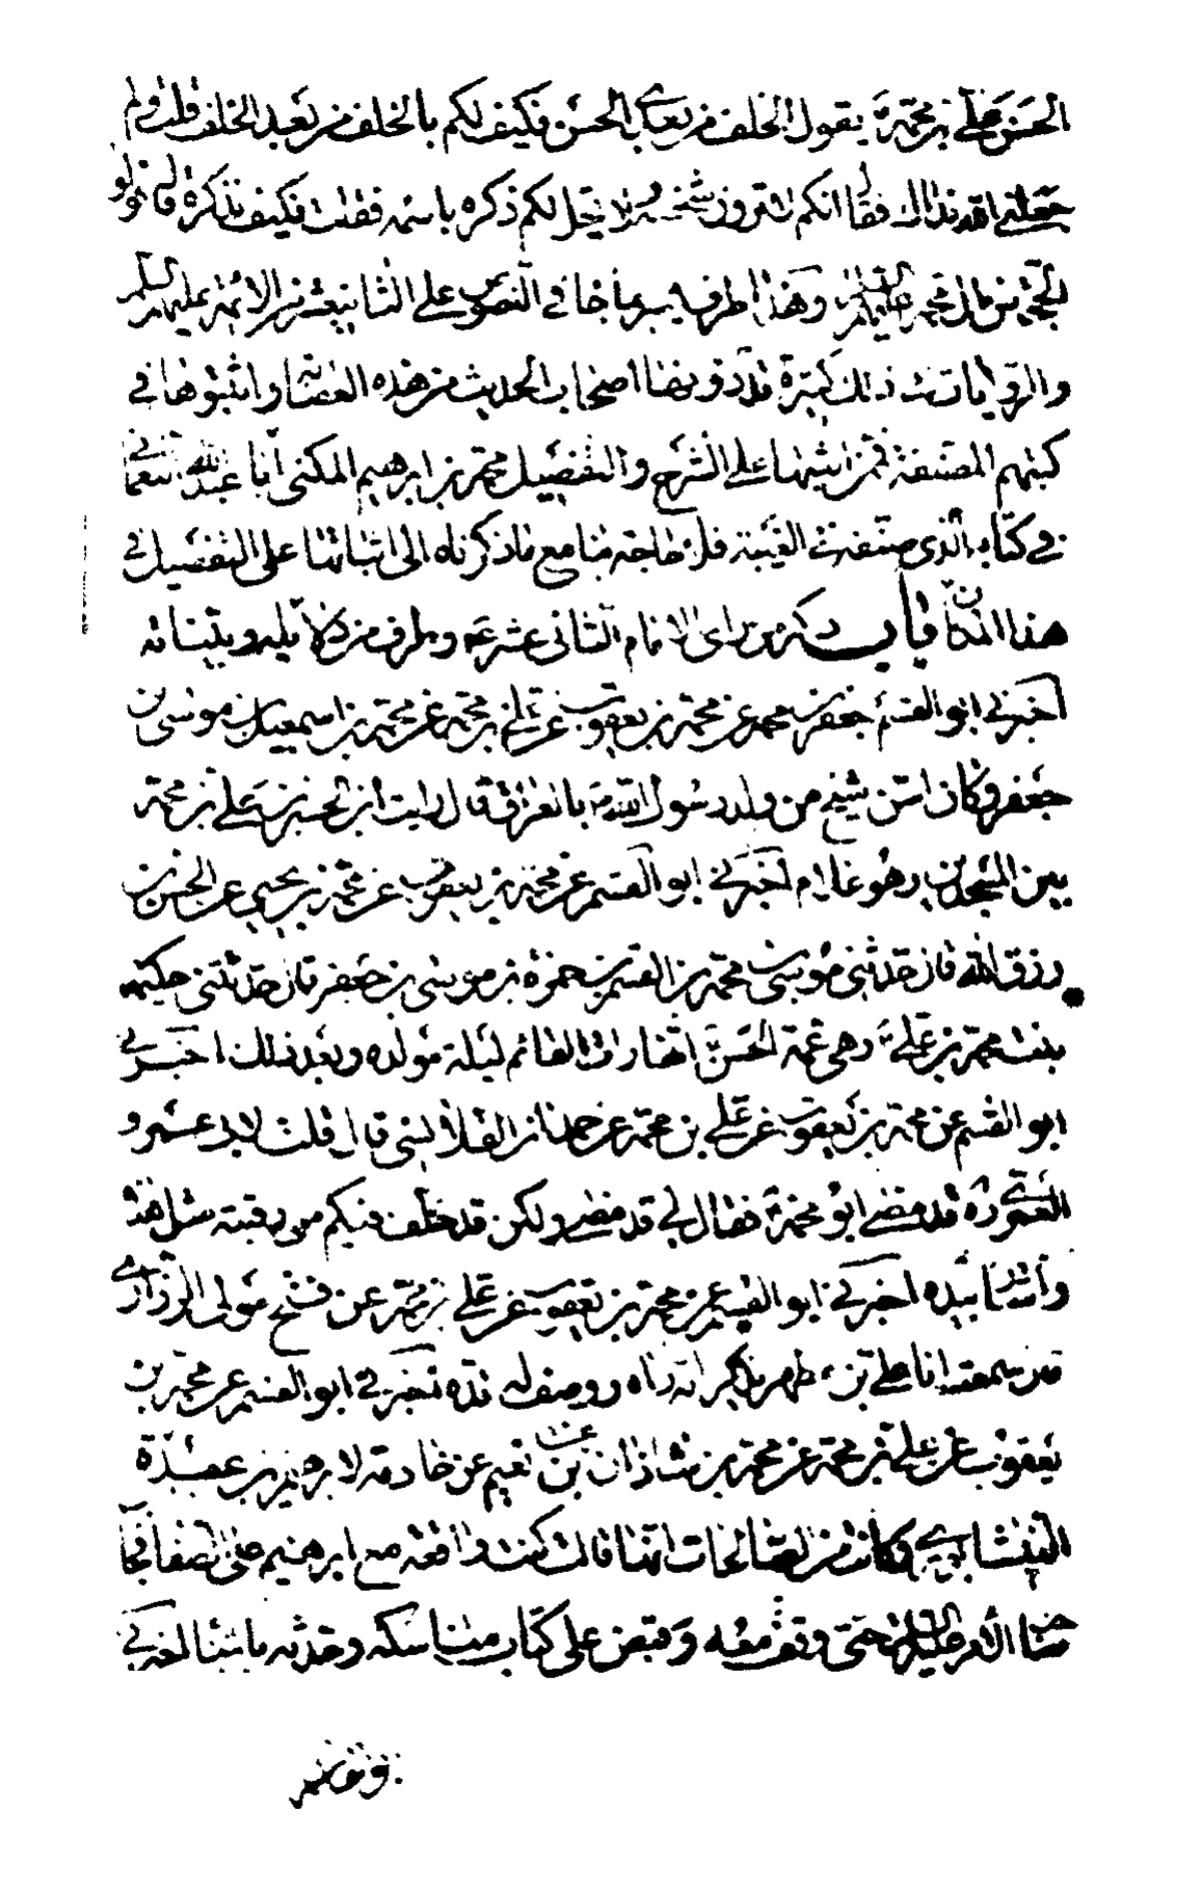 الحسن علي بن محمد ع يقول الخلف من بعدي الحسن فكيف لكم بالخلف من بعد الخلف قلت ولم
جعلني الله فداك فقال انكم لا ترون شخصه ولا يحل لكم ذكره باسمه فقلت فكيف نذكره قال قولوا
الحجة من ال محمد عليهم السلام وهذا طرف يسير مما جاء في النصوص على الثاني عشر من الائمة عليهم السلم
والروايات في ذلك كثيرة قد دونها اصحاب الحديث من هذه العصابة واثبتوها في
كتبهم المصنفة فممن اثبتها على الشرح والتفصيل محمد بن ابرهيم المكنى ابا عبد الله النعماني
في كتابه الذي صنفه في الغيبة فلا حاجة بنا مع ما ذكرناه الى اثباتها على التفصيل في
هذا المكان باب ذكر من راى الامام الثاني عشر ع وطرف من دلايله وبيناته
اخبرني ابو القسم جعفر بن محمد عن محمد بن يعقوب عن علي بن محمد عن محمد بن اسمعيل بن موسى بن
جعفر وكان اسن شيخ من ولد رسول الله ص بالعراق قال رايت ابن الحسن بن علي بن محمد
بين المسجدين وهو غلام اخبرني ابو القسم عن محمد بن يعقوب عن محمد بن يحيى عن الحسن بن
رزق الله قال حدثني موسى بن محمد بن القسم بن حمزة بن موسى بن جعفر قال حدثتني حكيمه
بنت محمد بن علي ع وهي عمة الحسن ع انها رات القائم ليلة مولده وبعد ذلك اخبرني
ابو القسم عن محمد بن يعقوب عن علي بن محمد عن حمدان القلانسي قال قلت لابي عمرو
العمري ره قد مضى ابو محمد ع فقال لي قد مضى ولكن قد خلف فيكم من رقبته مثل هذه
واشار بيده اخبرني ابو القسم عن محمد بن يعقوب عن علي بن محمد عن فتح مولى الزراري
قال سمعت ابا علي بن مطهر يذكر انه راه ووصف له قده اخبرني ابو القسم عن محمد بن
يعقوب عن علي بن محمد عن محمد بن شاذان بن نعيم عن خادمة لابرهيم بن عبدة
النيشابوري وكانت من الصالحات انها قالت كنت واقفة مع ابرهيم على الصفا فجا
صاحب الامر عليه السلم حتى وقف معه وقبض على كتاب مناسكه وحدثه باشيا اخبرني